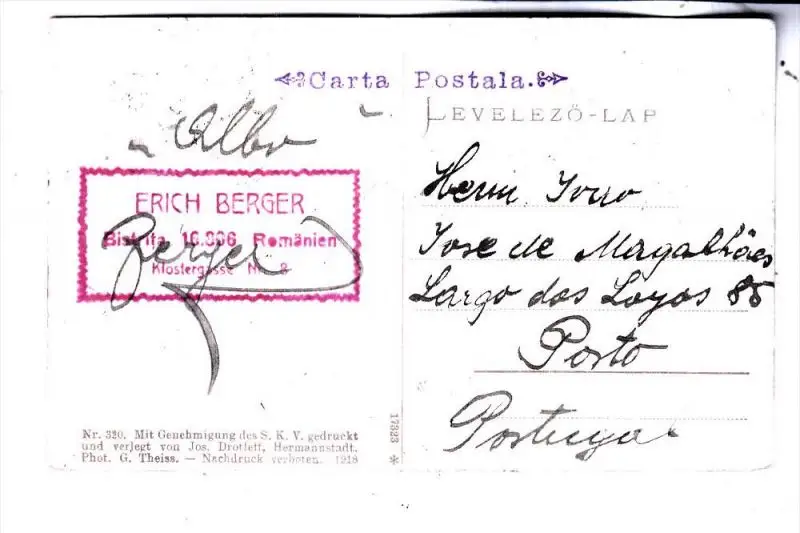 Carta Postala.
LEVELEZŐ-LAP
„Albo"
ERICH BERGER
Bistrita 16.396 Romänien
Klostergasse Nr. 8
Berger
Herrn
Jose de Magalhães
Largo dos Loyos 85
Porto
Portugal
Nr. 320. Mit Genehmigung des S. K. V. gedruckt
und verlegt von Jos. Drotleff, Hermannstadt.
Phot. G. Theiss. — Nachdruck verboten. 1218
17323